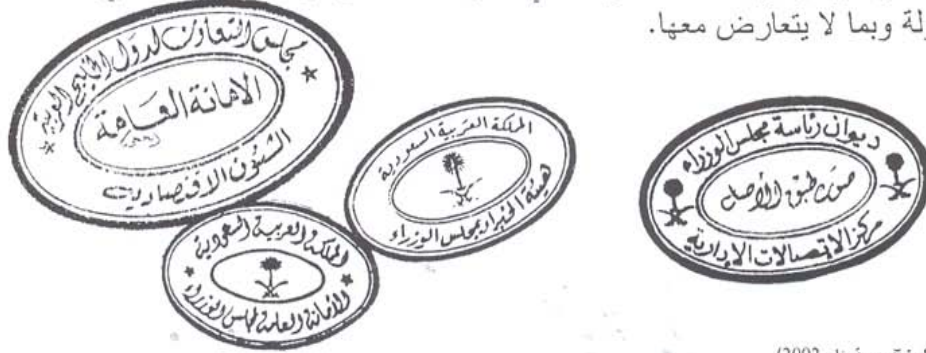 ولة وبما لا يتعارض معها.
مجلس التعاون لدول الخليج العربية
الامانة العامة
الشئون الاقتصادية
المملكة العربية السعودية
هيئة الخبراء بمجلس الوزراء
المملكة العربية السعودية
الأمانة العامة لمجلس الوزراء
ديوان رئاسة مجلس الوزراء
صورة طبق الأصل
مركز الاتصالات الإدارية